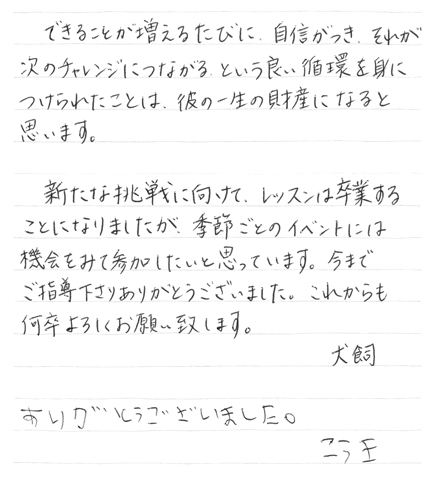 できることが増えるたびに、自信がつき、それが
次のチャレンジにつながる、という良い循環を身に
つけられたことは、彼の一生の財産になると
思います。
新たな挑戦に向けて、レッスンは卒業する
ことになりましたが、季節ごとのイベントには
機会をみて参加したいと思っています。今まで
ご指導下さりありがとうございました。これからも
何卒よろしくお願い致します。
犬飼
ありがとうございました。
こうき